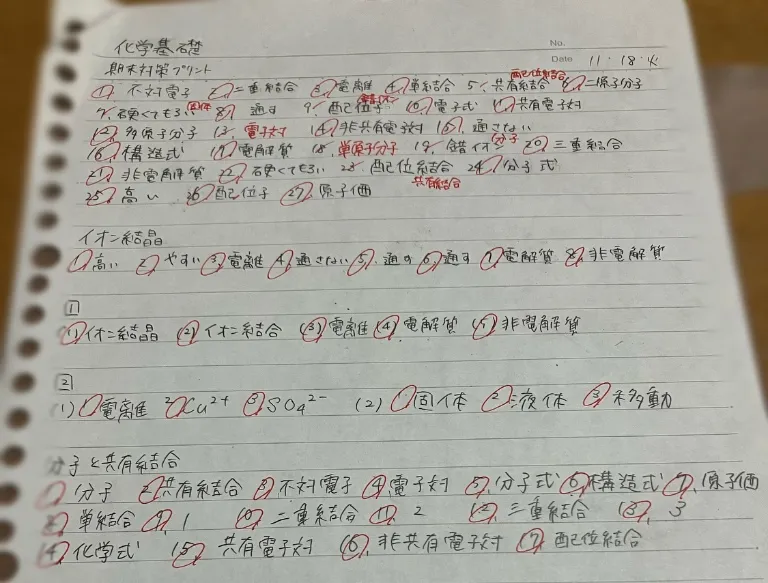 化学基礎
No.
期末対策プリント
Date 11・18・火
配位結合
1. 不対電子 2. 二重結合 3. 電離 4. 単結合 5. 共有結合 6. 二原子分子
固体 錯イオン
7. 硬くてもろい 8. 通す 9. 配位子 10. 電子式 11. 共有電子対
12. 多原子分子 13. 電子対 14. 非共有電子対 15. 通さない
分子
16. 構造式 17. 電解質 18. 単原子分子 19. 錯イオン 20. 三重結合
21. 非電解質 22. 硬くてもろい 23. 配位結合 24. 分子式
共有結合
25. 高い 26. 配位子 27. 原子価
イオン結晶
1. 高い 2. やすい 3. 電離 4. 通さない 5. 通す 6. 通す 7. 電解質 8. 非電解質
1
(1) イオン結晶 (2) イオン結合 (3) 電離 (4) 電解質 (5) 非電解質
2
(1) 1. 電離 2. Cu²⁺ 3. SO₄²⁻ (2) 1. 固体 2. 液体 3. 移動
分子と共有結合
1. 分子 2. 共有結合 3. 不対電子 4. 電子対 5. 分子式 6. 構造式 7. 原子価
8. 単結合 9. 1 10. 二重結合 11. 2 12. 三重結合 13. 3
14. 化学式 15. 共有電子対 16. 非共有電子対 17. 配位結合